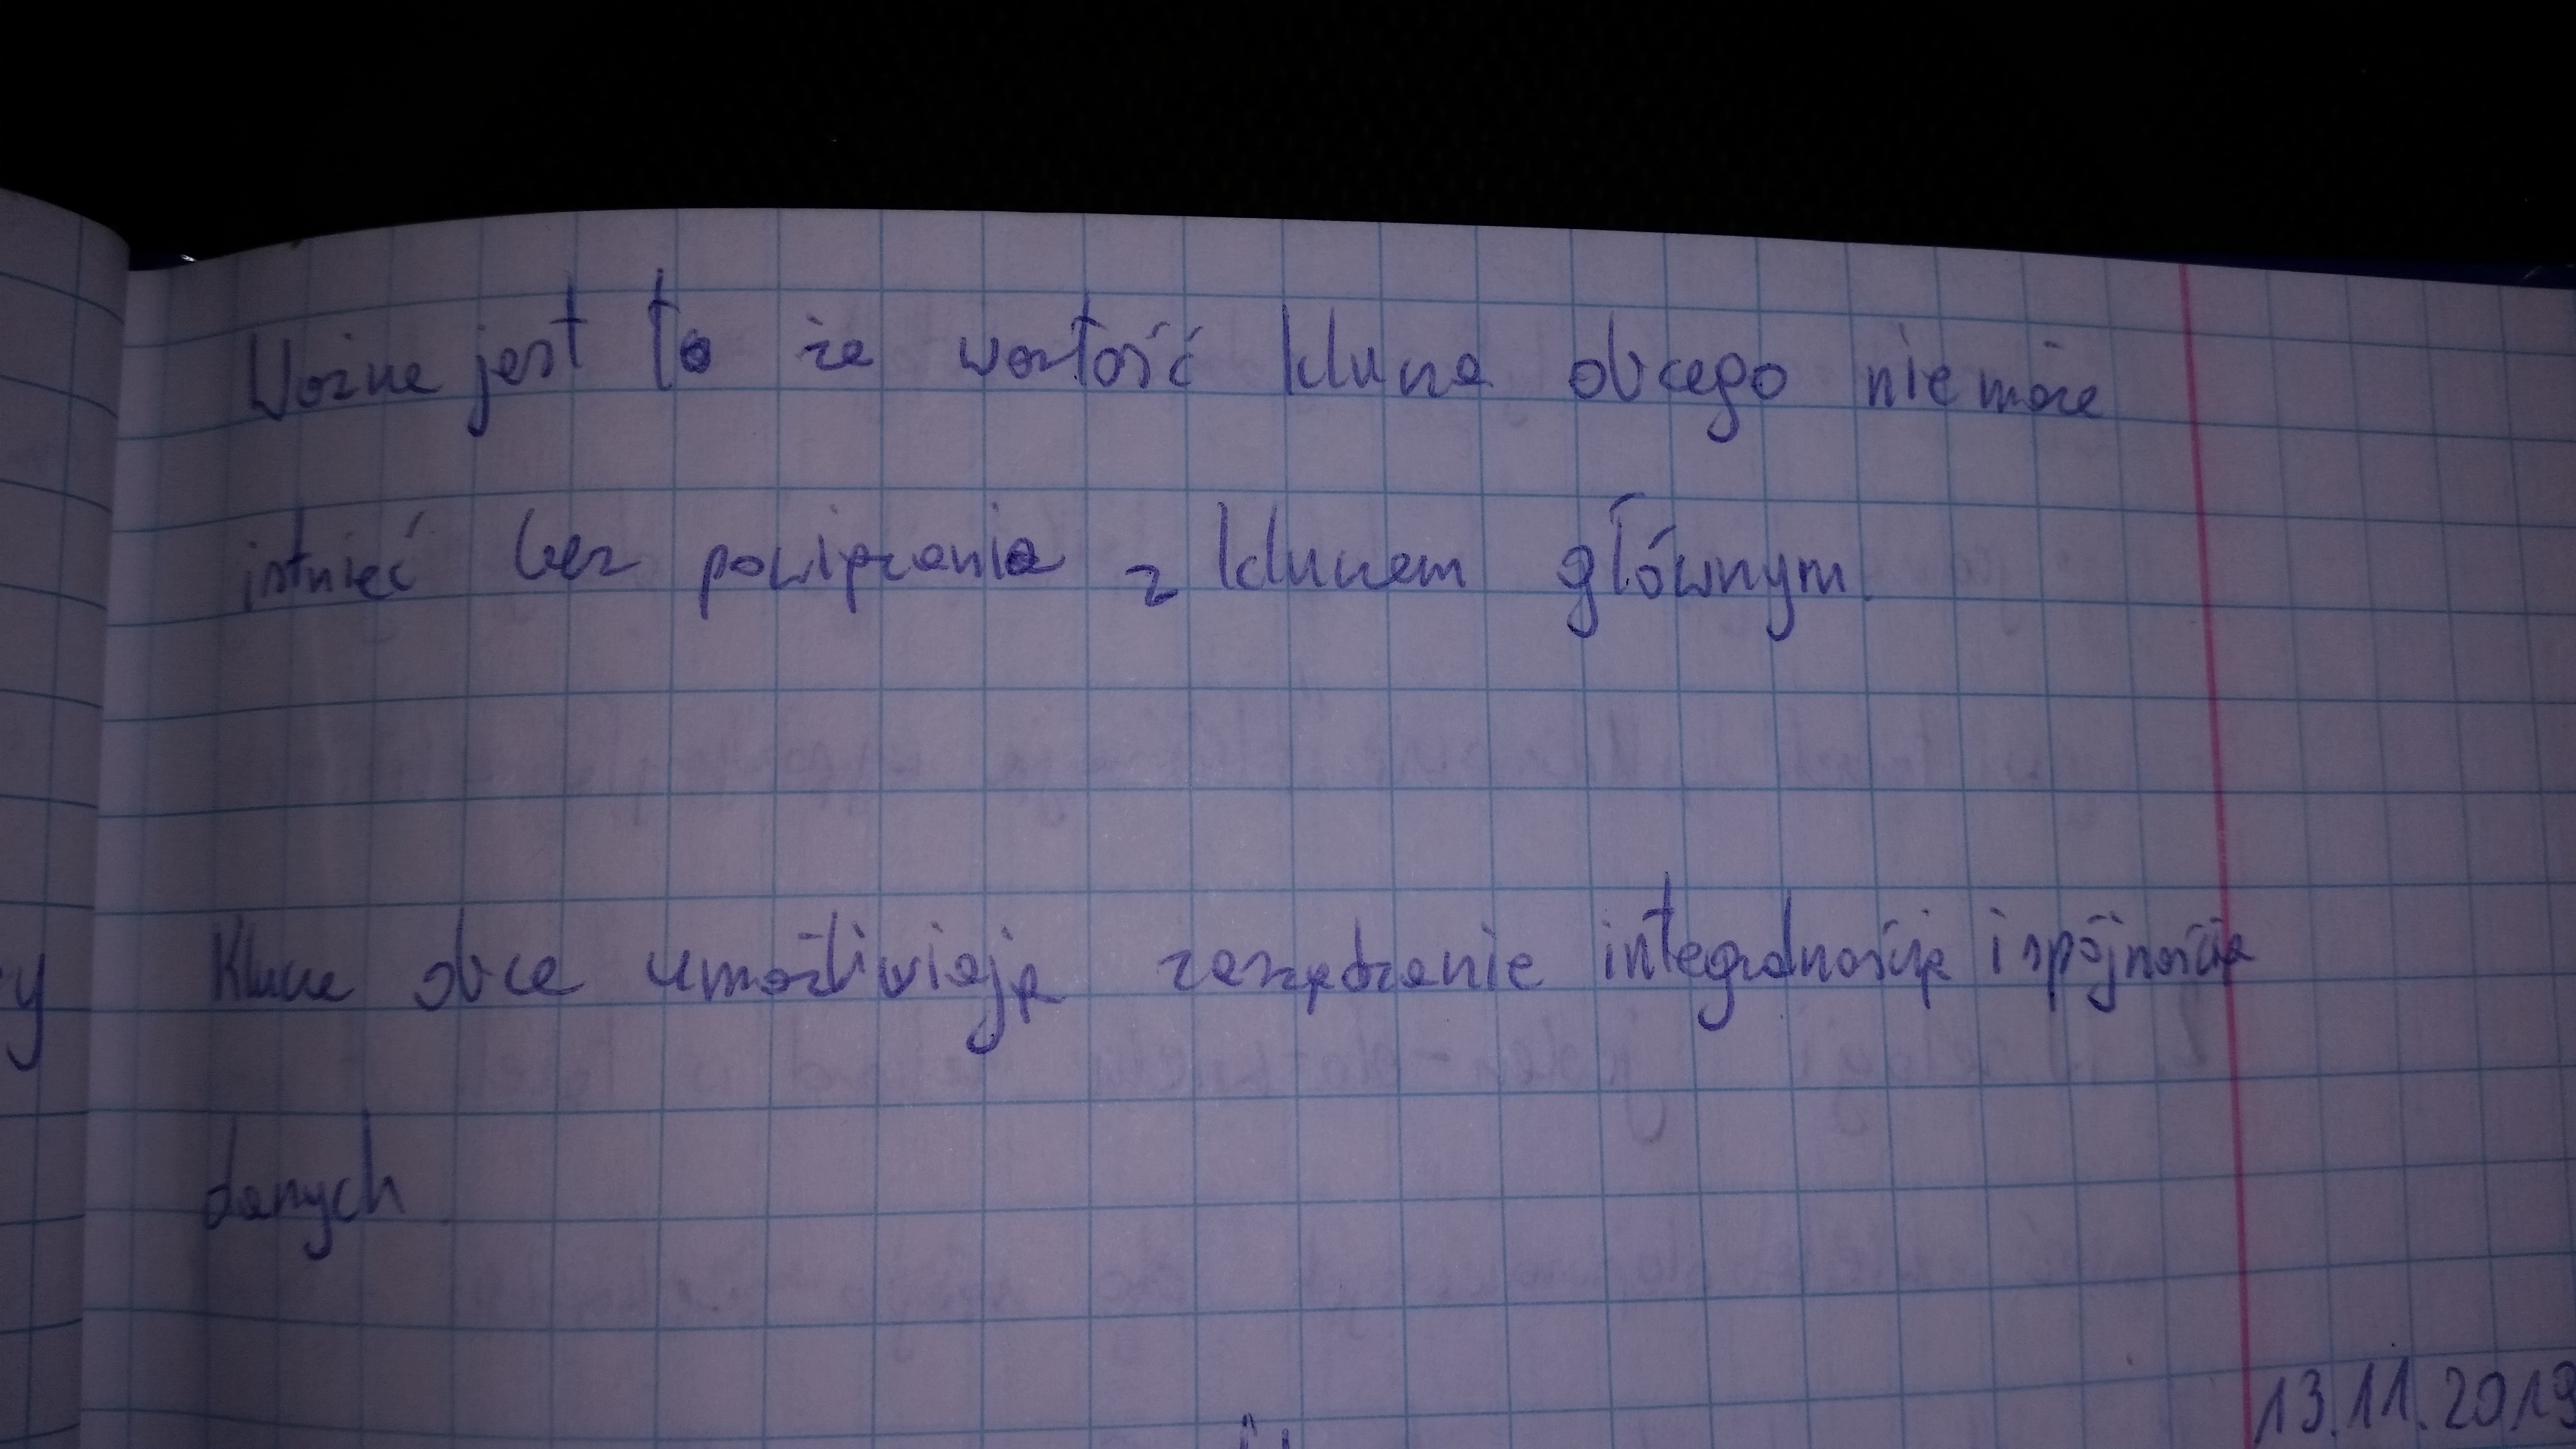 Ważne jest to że wartość klucza obcego nie może
istnieć bez powiązania z kluczem głównym.
Klucze obce umożliwiają zarządzanie integralnością i spójnością
danych.
y
13.11.2019